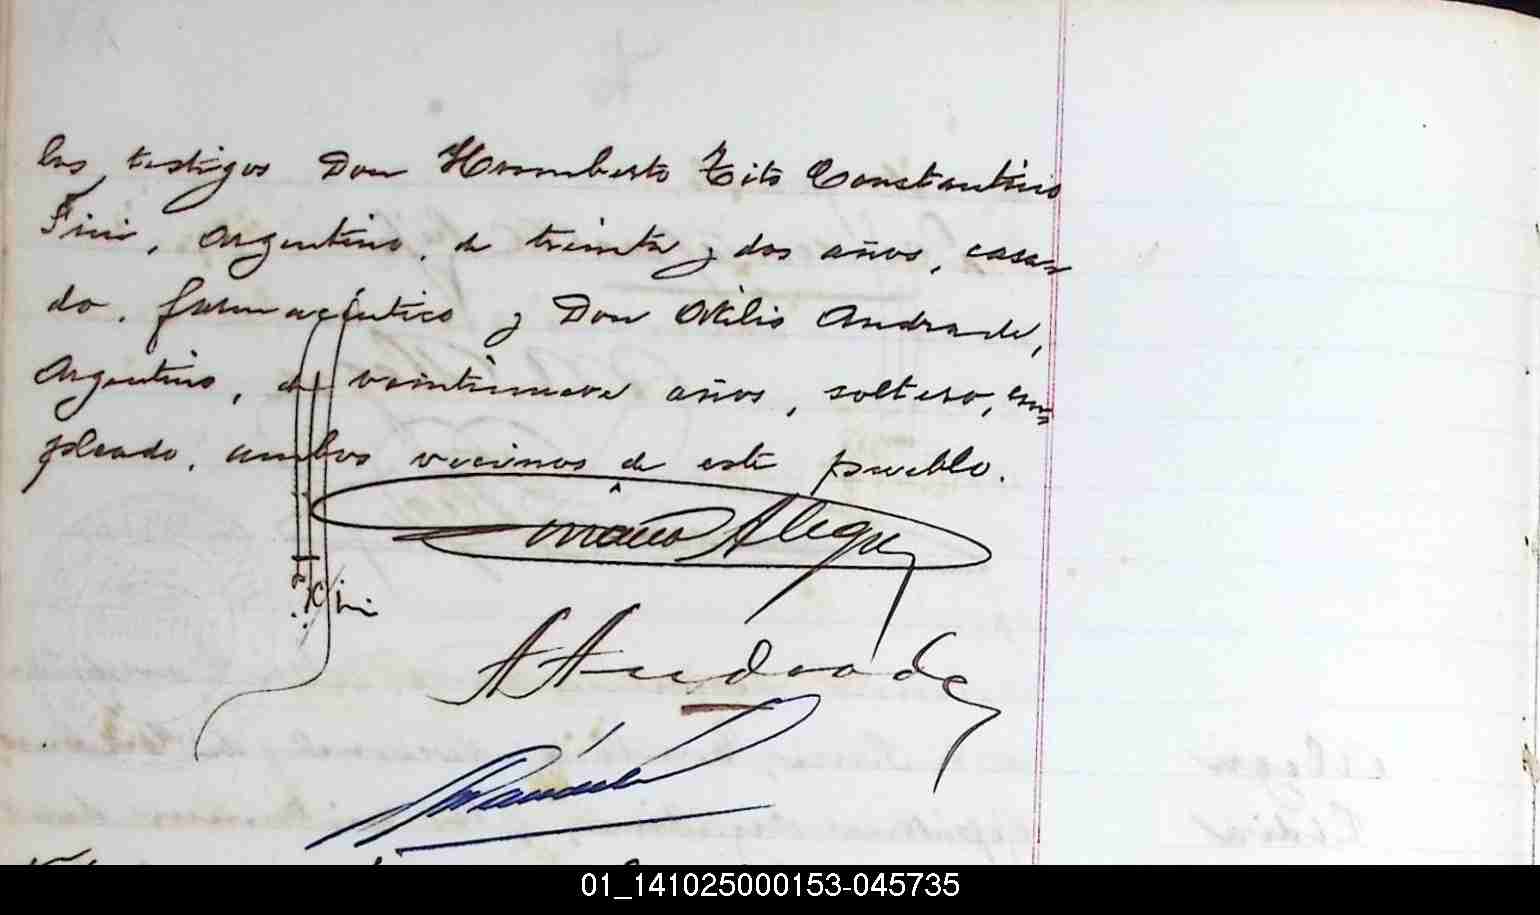 los testigos Don Humberto Tito Constantino
Fini, Argentino, de treinta y dos años, casa-
do, farmacéutico y Don Atilio Andrade,
Argentino, de veintinueve años, soltero, em-
pleado, ambos vecinos de este pueblo.
Alegre
Fini
A Andrade
01_141025000153-045735